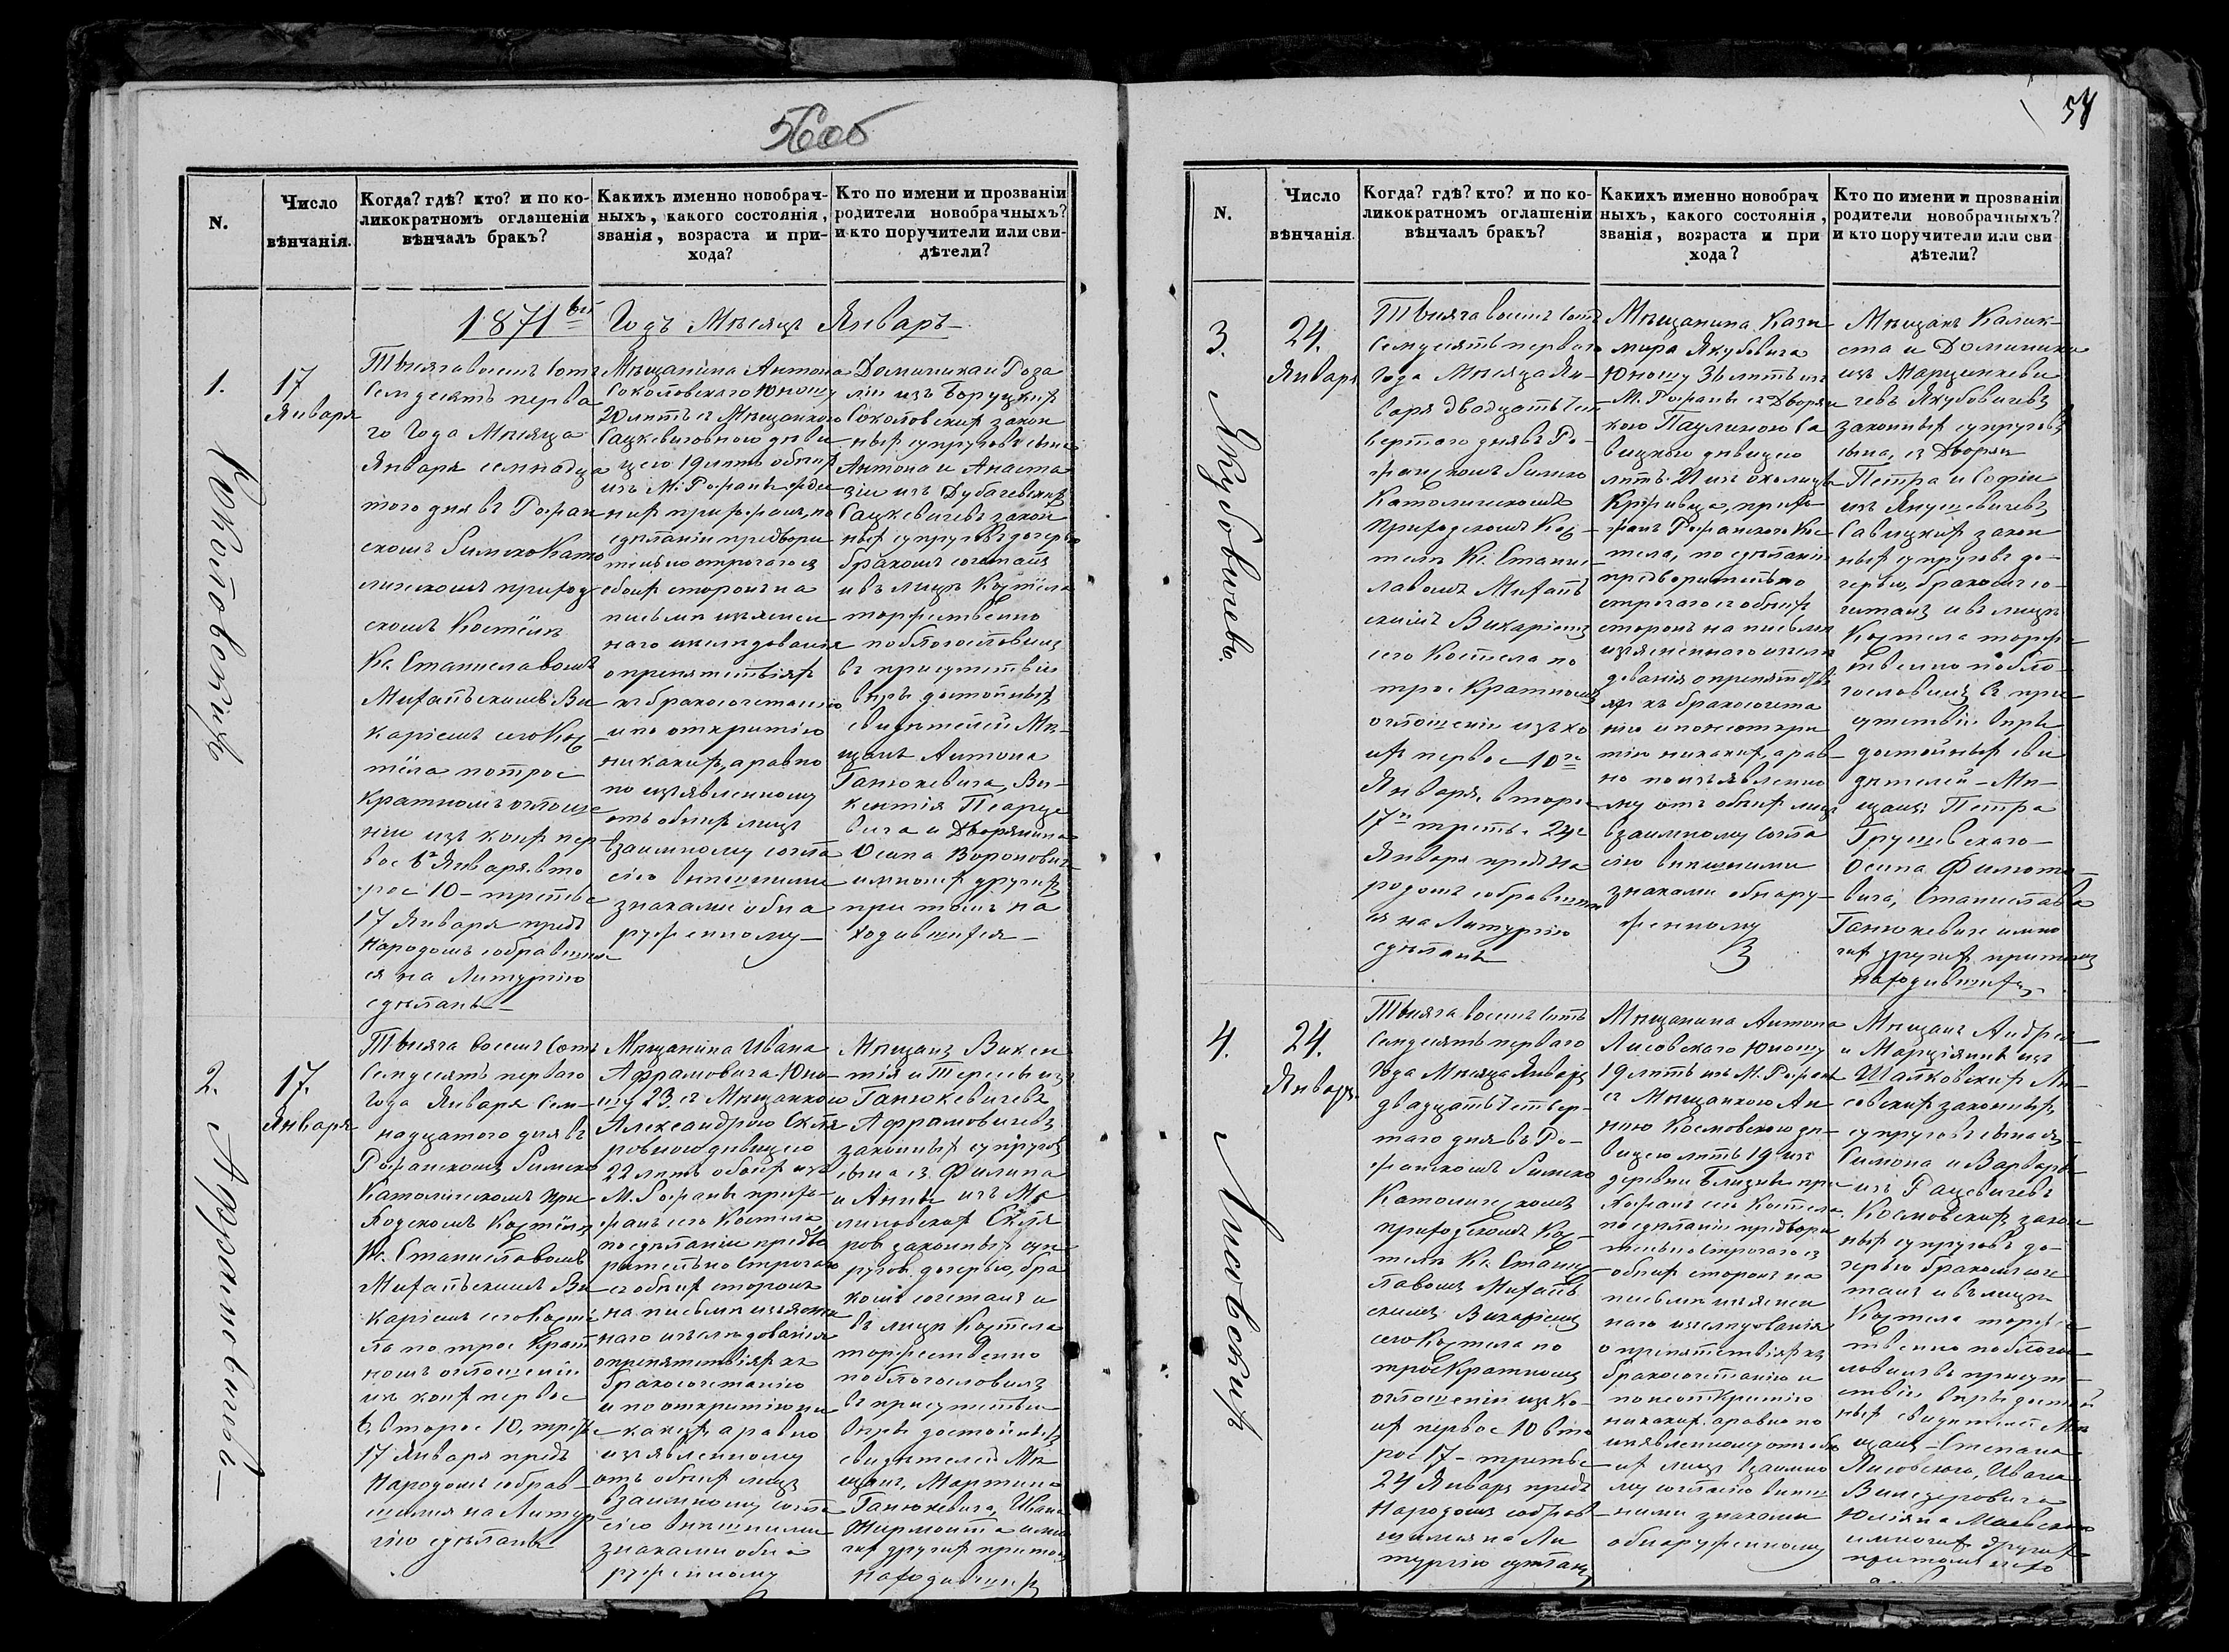 56об
N.
Число
вѣнчанія.
Когда? гдѣ? кто? и по ко-
ликократномъ оглашеніи
вѣнчалъ бракъ?
Какихъ именно новобрач-
ныхъ, какого состоянія,
званія, возраста и при-
хода?
Кто по имени и прозванію
родители новобрачныхъ?
и кто поручители или сви-
дѣтели?
1871вый Годъ Мѣсяцъ Январь
1.
17
Января
Тысяча восемь сотъ
Семдесятъ перва
го Года Мѣсяца
Января семнадца
того дня въ Рожан
скомъ Римско Като
лическомъ приход
скомъ Костёлѣ
Кс. Станиславомъ
Викаріемъ сего Кос
тёла по трое
кратномъ оглаше
ніи изъ коихъ пер
вое 6го Января, вто
рое 10 третье
17 Января предъ
Народомъ собравшим
ся на Литургію
сдѣланъ
Мѣщанина Антона
Соколовскаго Юношу
20 лѣтъ съ Мѣщанкою
Сацкевичовною дѣви
цею 19 лѣтъ обоихъ
изъ М. Рожаны
сдѣланіи предвари
тельно строгаго съ
обоихъ сторонъ на
письмѣ изъяснен
наго изслѣдованія
о препятствіяхъ
къ бракосочетанію
никакихъ, а равно
по изъявленному
отъ обоихъ лицъ
взаимному согла
сію внѣшними
знаками обна
руженному
Доминика и Роза
ліи изъ Боруцкихъ
Соколовскихъ закон
ныхъ супруговъ сына
Антона и Анаста
зіи
Сацкевичевъ закон
ныхъ супруговъ дочерью
бракомъ сочеталъ
и въ лицѣ Костёла
торжественно
поблагословилъ
въ присутствіи
вѣры достойныхъ
свидѣтелей Мѣ-
щанъ Антона
Ганюкевича, Ви-
кентія
вича и Дворянина
Осипа Воронович
и многихъ другихъ
при томъ на
ходившихся
Соколовскихъ
2.
17.
Января
Тысяча восемь сотъ
Семдесятъ перваго
Года Января Сем-
надцатого дня въ
Рожанскомъ Римско
Католическомъ При
ходскомъ Костёлѣ
Кс. Станиславомъ
каріемъ сего Костё
ла по трое Крат
номъ оглашеніи
изъ коихъ первое
6, второе 10, третье
17 Января предъ
Народомъ собрав-
шимся на Литур
гію сдѣланъ
Мѣщанина Ивана
Абрамовича Юно-
шу 23, съ Мѣщанкою
Александрою Скля
ровною дѣвицею
22 лѣтъ обоихъ изъ
М. Рожаны прихо-
жанъ сего Костела,
по сдѣланіи предва
рительно строгаго
съ обоихъ сторонъ
на письмѣ изъяснен
наго изслѣдованія
о препятствіяхъ къ
бракосочетанію
и по открытію ни
какихъ, а равно
изъявленному
отъ обоихъ лицъ
взаимному согла
сію внѣшними
знаками обна
руженному
Мѣщанъ Викен
тія и Тересы изъ
Ганюкевичевъ
Абрамовичевъ
законныхъ супруговъ
сына съ Филипа
и Анны изъ
линовскихъ Скля
ровъ законныхъ суп
руговъ дочерью, бра
комъ сочеталъ и
въ лицѣ Костела
торжественно
поблагословилъ
въ присутствіи
вѣры достойныхъ
свидѣтелей Мѣ
щанъ, Мартина
Ганюкевича, Ивана
Жирмонта и мно
гихъ другихъ при томъ
находившихся
Абрамовичевъ
57
N.
Число
вѣнчанія.
Когда? гдѣ? кто? и по ко-
ликократномъ оглашеніи
вѣнчалъ бракъ?
Какихъ именно новобрач
ныхъ, какого состоянія,
званія, возраста и при
хода?
Кто по имени и прозванію
родители новобрачныхъ?
и кто поручители или сви
дѣтели?
3.
24.
Января
Тысяча восемь сотъ
Семдесятъ перваго
Года Мѣсяца Ян-
варя двадцать чет
вертаго дня въ Ро-
жанскомъ Римско
Католическомъ
Приходскомъ Кос-
телѣ Кс. Станис
скимъ Викаріемъ
сего Костела по
трое Кратномъ
оглашеніи изъ ко
ихъ первое 10го
Января, второе
17го третье 24го
Января предъ На
родомъ собравшим
ся на Литургію
сдѣланъ
Мѣщанина Кази
мира Якубовича
Юношу 36 лѣтъ изъ
М. Рожаны съ Дворян
кою Паулиною Са
вицкою дѣвицею
лѣтъ 21 изъ околицы
жанъ Рожанскаго Кос
тела, по сдѣланіи
предварительно
строгаго съ обоихъ
сторонъ на письмѣ
изъясненнаго изслѣ
дованія о препятстві
яхъ къ бракосочета
нію и по неоткры
тію никакихъ, а рав
но по изъявленно
му отъ обоихъ лицъ
взаимному согла
сію внѣшними
знаками обнару-
женному
Мѣщанъ Калик-
ста и Доминики
изъ Марцинкеви
чевъ Якубовичевъ
законныхъ супруговъ
сына, съ Дворян
Петра и Софіи
изъ Янушевичевъ
Савицкихъ закон
ныхъ супруговъ до-
черью, бракомъ со-
четалъ и въ лицѣ
Костела торже-
твенно побла-
гословилъ въ при
сутствіи вѣры
достойныхъ сви
дѣтелей Мѣ-
щанъ Петра
Грушевскаго
Осипа Филото-
вича, Станислава
Ганюкевича и мно
гихъ другихъ при томъ
находившихся
Якубовичевъ.
4.
24.
Января
Тысяча восемь сотъ
Семдесятъ перваго
Года Мѣсяца Января
двадцать четвер-
таго дня въ Ро-
жанскомъ Римско
Католическомъ
приходскомъ Кос-
телѣ Кс. Станис
скимъ Викаріемъ
сего Костела по
трое Кратномъ
оглашеніи изъ ко-
ихъ первое 10 вто
рое 17 третье
24 Января предъ
Народомъ собрав
шимся на Ли
тургію сдѣланъ
Мѣщанина Антона
Лисовскаго Юношу
19 лѣтъ изъ М. Рожаны
съ Мѣщанкою Ан
ною Космовскою дѣ-
вицею лѣтъ 19 изъ
деревни Близны при
хожанъ сего Костела
по сдѣланіи предвари
тельно строгаго съ
обоихъ сторонъ на
письмѣ изъяснен
наго изслѣдованія
о препятствіяхъ къ
бракосочетанію и
по неоткрытію
никакихъ, а равно по
изъявленному отъ обо
ихъ лицъ взаимно
му согласію внѣш
ними знаками
обнаруженному
Мѣщанъ Андрея
и Марціянны изъ
Шалковскихъ Ли-
совскихъ законныхъ
супруговъ сына съ
Симона и Варвары
изъ Рацевичевъ
Космовскихъ закон
ныхъ супруговъ до-
черью бракомъ соче
талъ и въ лицѣ
Костела торже
твенно поблаго-
ловилъ въ присут-
ствіи вѣры достой
ныхъ свидѣтелей Мѣ
щанъ Степана
Лисовскаго, Ивана
Юліяна Маевскаго
и многихъ другихъ
при томъ нахо
Лисовскихъ